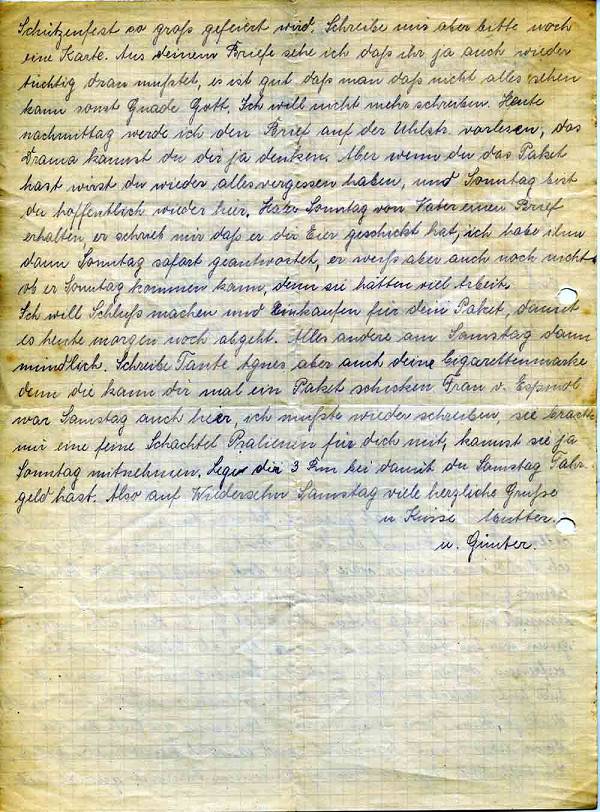 Schützenfest so groß gefeiert wird. Schreibe uns aber bitte noch
eine Karte. Aus deinem Briefe sehe ich daß ihr ja auch wieder
tüchtig dran mußtet, es ist gut daß man daß nicht alles sehen
kann sonst Gnade Gott. Ich will nicht mehr schreiben. Heute
nachmittag werde ich den Brief auf der Uhlstr. vorlesen, das
Drama kannst du dir ja denken. Aber wenn du das Paket
hast wirst du wieder alles vergessen haben, und Sonntag bist
du hoffentlich wieder hier. Sonntag von Vater einen Brief
erhalten, er schrieb mir daß er die Eier geschickt hat, ich habe ihm
dann Sonntag sofort geantwortet, er weiß aber auch noch nicht
ob er Sonntag kommen kann, denn sie hatten viel Arbeit.
Ich will Schluß machen und Einkaufen für dem Paket, damit
es heute morgen noch abgeht. Alles andere am Samstag dann
mündlich. Schreibe Tante Agnes aber auch deine Cigarettenmarke
denn die kann dir mal ein Paket schicken Frau v.
war Samstag auch hier, ich mußte wieder schreiben, sie brachte
mir eine feine Schachtel Pralienen für dich mit, kannst sie ja
Sonntag mitnehmen. Lege dir 3 bei damit du Samstag Fahr-
geld hast. Also auf Wiedersehn Samstag viele herzliche Grüße
u Küsse Mutter.
u. Günter.